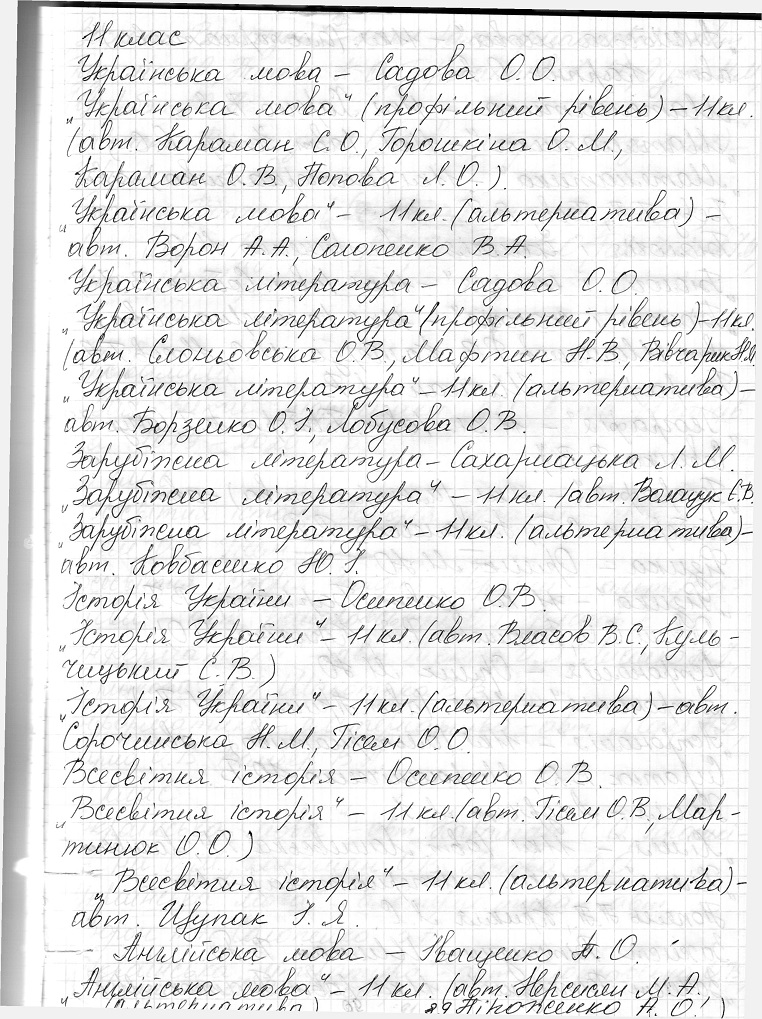 11 клас
Українська мова – Садова О.О.
„Українська мова" (профільний рівень) – 11 кл.
(авт. Караман С.О., Горошкіна О.М.,
Караман О.В., Попова Л.О.).
„Українська мова" – 11 кл. (альтернатива) –
авт. Ворон А.А., Солопенко В.А.
Українська література – Садова О.О.
„Українська література" (профільний рівень) – 11 кл.
(авт. Слоньовська О.В., Мафтин Н.В., Вівчарик Н.Я.
„Українська література" – 11 кл. (альтернатива) –
авт. Борзенко О.І., Лобусова О.В.
Зарубіжна література – Сахарнацька Л.М.
„Зарубіжна література" – 11 кл. (авт. Волощук Є.В.
„Зарубіжна література" – 11 кл. (альтернатива) –
авт. Ковбасенко Ю.І.
Історія України – Осипенко О.В.
„Історія України" – 11 кл. (авт. Власов В.С., Куль-
чицький С.В.)
„Історія України" – 11 кл. (альтернатива) – авт.
Сорочинська Н.М., Гісем О.О.
Всесвітня історія – Осипенко О.В.
„Всесвітня історія" – 11 кл. (авт. Гісем О.В., Мар-
тинюк О.О.)
„Всесвітня історія" – 11 кл. (альтернатива) –
авт. Щупак І.Я.
Англійська мова – Іващенко Т.О.
„Англійська мова" – 11 кл. (авт. Нерсисян М.А.
(альтернатива) Піроженко А.О.)